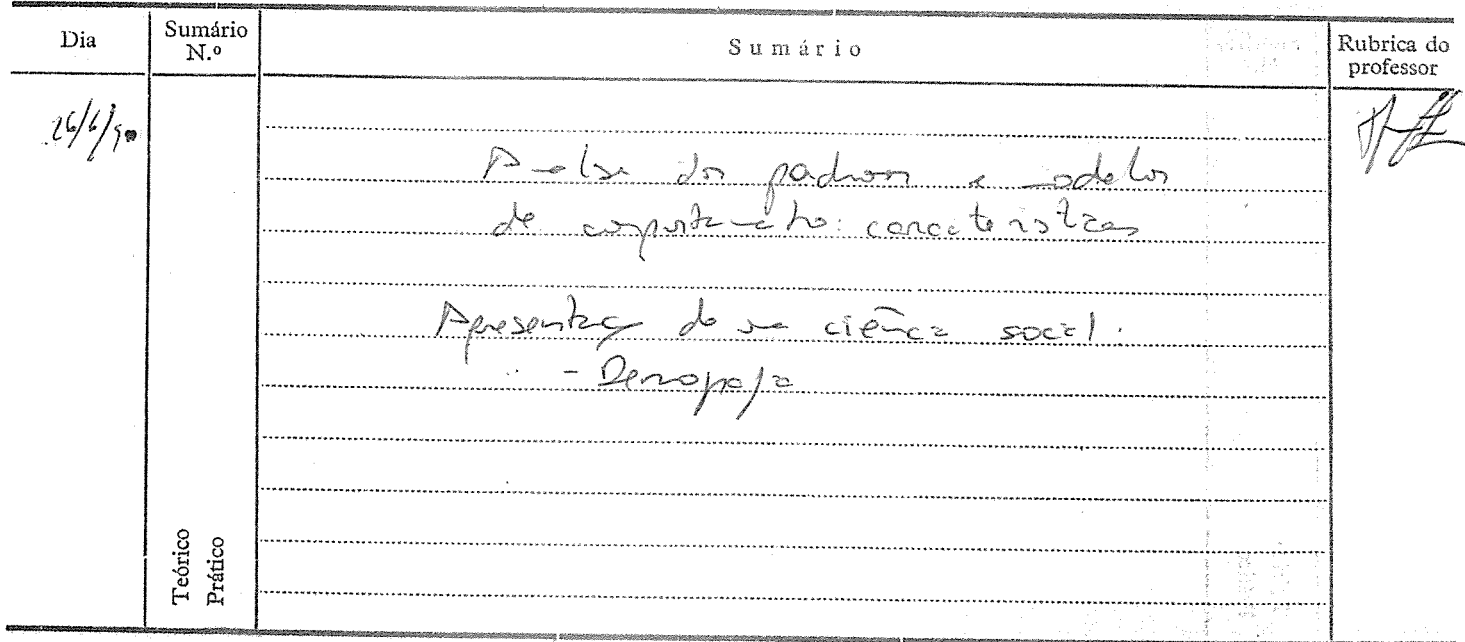 Dia
Sumário
N.º
Sumário
Rubrica do
professor
26/6/90
Análise dos padrões e modelos
de comportamento: características
Apresentação de uma ciência social.
- Demografia
Teórico
Prático